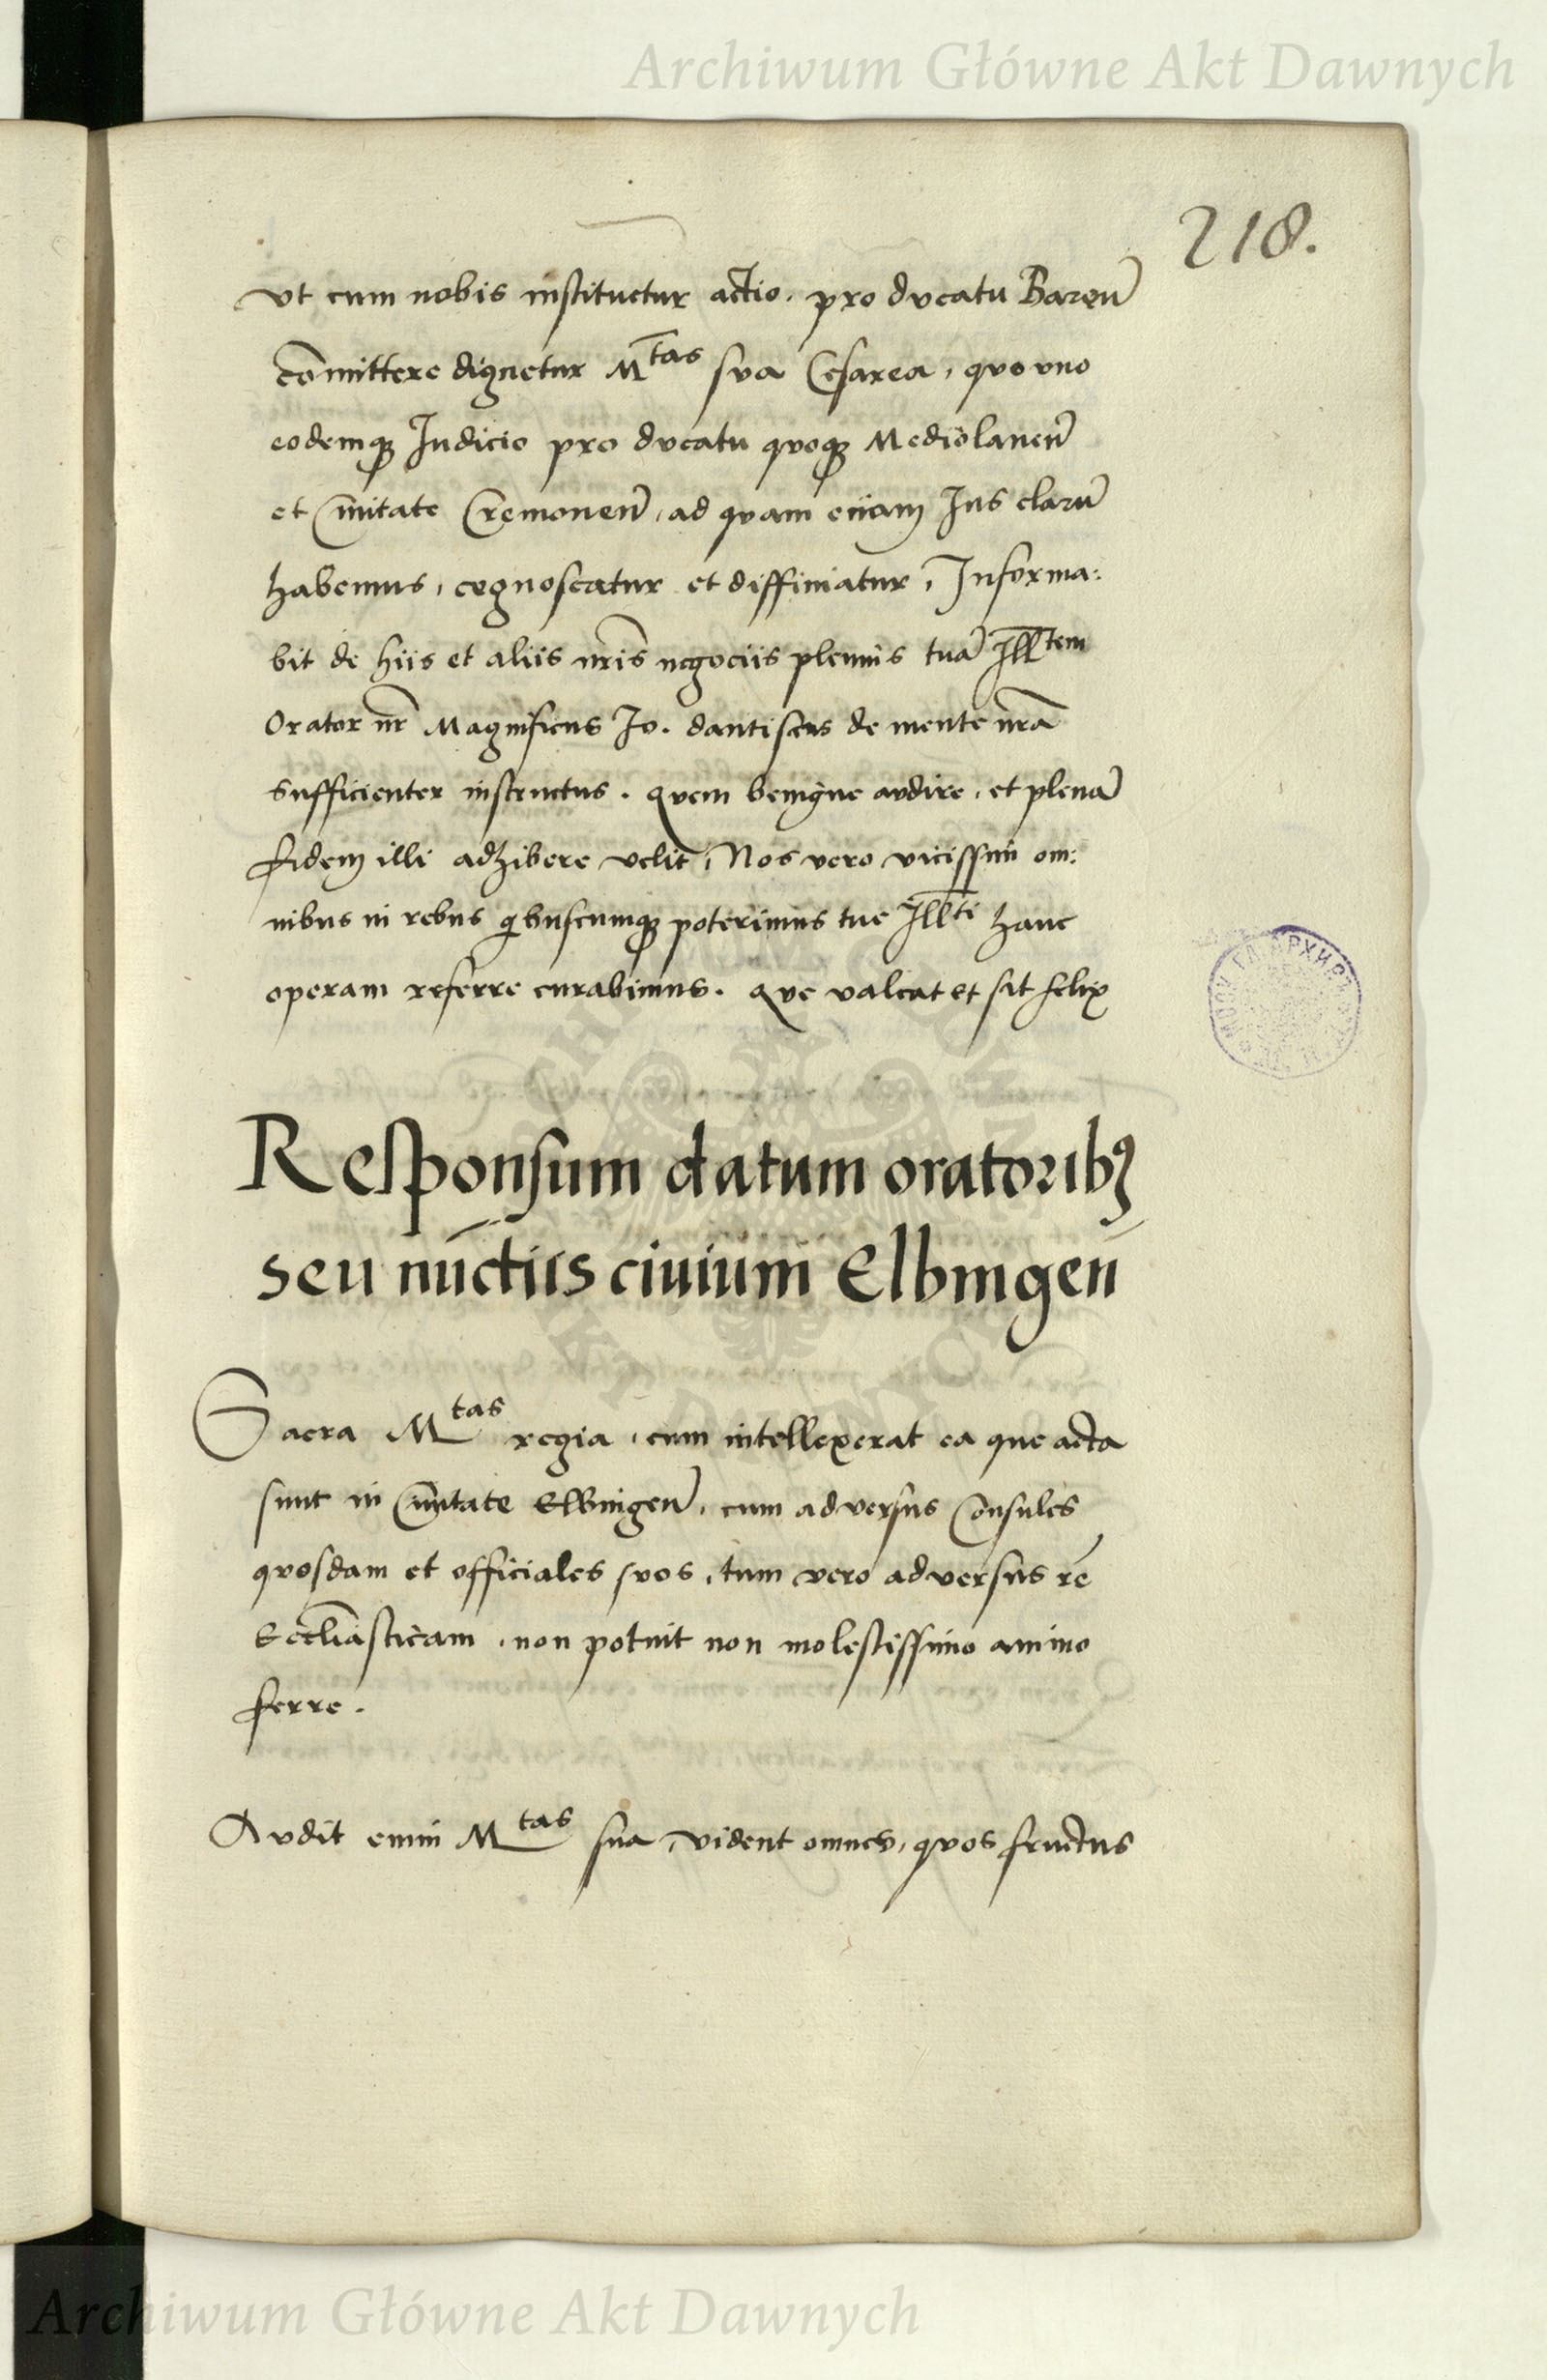 Archiwum Główne Akt Dawnych
218.
vt cum nobis instituetur actio. pro ducatu Bareñ
cõmittere dignetur M^tas sua Cesarea, quo vno
eodemqꝫ Iudicio pro ducatu quoqꝫ Mediolaneñ
et Ciuitate Cremoneñ, ad quam etiam Ius clarũ
habemus, cognoscatur et diffiniatur, Informa:
bit de hiis et aliis nr̃is negociis plenius tuã Ill^tem
Orator nr̃ Magnificus Io. dantiscus de mente nr̃a
sufficienter instructus. quem benigne audire, et plenã
fidem illi adhibere velit, Nos vero vicissim om:
nibus in rebus quibuscumqꝫ poterimus tue Ill^ti hanc
operam referre curabimus. que valeat et sit felix
Responsum datum oratoribꝫ
seu nũctiis ciuium Elbingeñ
Sacra M^tas regia, cum intellexerat ea que acta
sunt in Ciuitate Elbingeñ, cum adversus Consules
quosdam et officiales suos, tum vero adversus rẽ
Eccl̃iasticam, non potuit non molestissimo animo
ferre.
Audit enim M^tas sua, vident omnes, quos fructus
Archiwum Główne Akt Dawnych